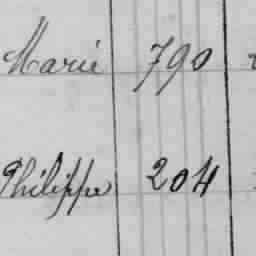 Marie 790
Philippe 204